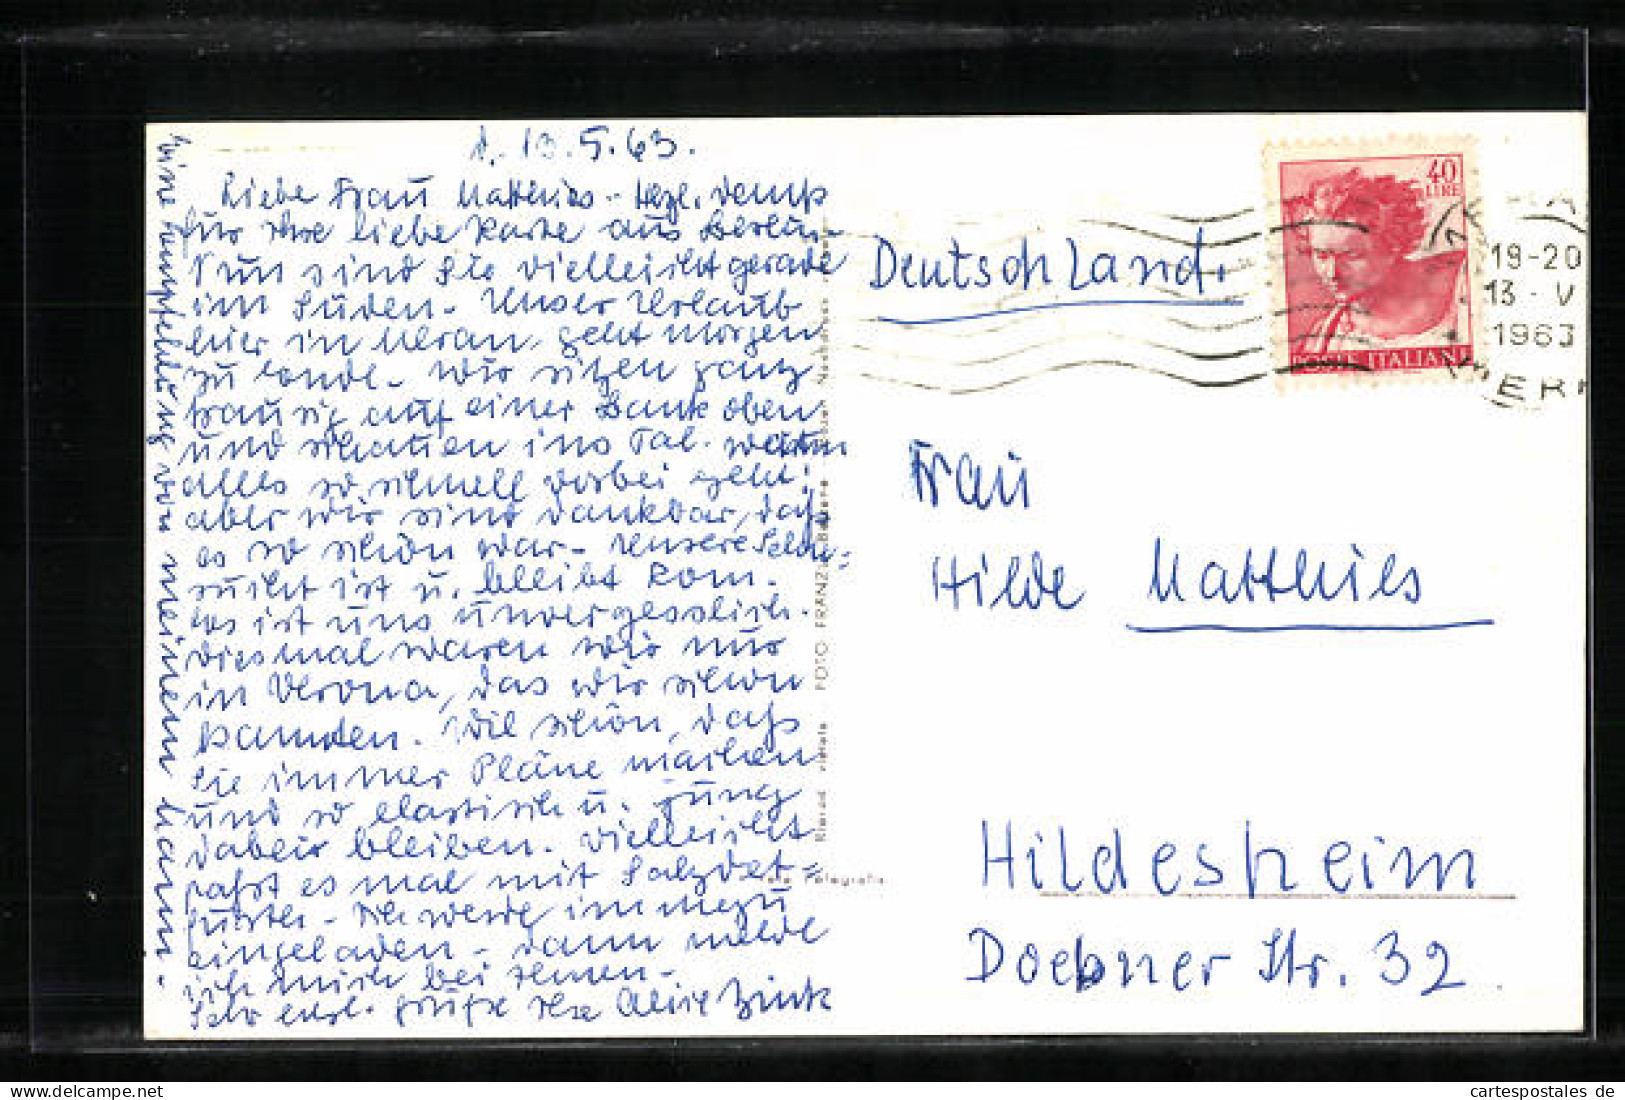 d. 13.5.63.
Liebe Frau Matthies - Herzl.
für Ihre liebe Karte aus Berlin -
Nun sind Sie vielleicht gerade
im Süden. Unser Urlaub
hier in Meran, geht morgen
zu Ende. Wir sitzen ganz
traurig auf einer Bank oben
und schauen ins Tal. Warum
alles so schnell vorbei geht!
aber wir sind dankbar, daß
es so schön war - Unsere Sehn=
sucht ist u. bleibt Rom.
es ist uns unvergesslich.
diesmal waren wir nur
in Verona, das wir schon
kannten. Wie schön, daß
Sie immer Pläne machen
und so elastisch u. jung
dabei bleiben. Vielleicht
paßt es mal mit Salzdet=
furth - Ich werde immerzu
eingeladen - dann melde
ich mich bei Ihnen -
Sehr herzl. Grüße Ihre Alice Zink
eine Empfehlung von meinem Mann.
FOTO FRANZ
Fotografia
Deutschland.
40
LIRE
POSTE ITALIANE
19-20
13 - V
1963
MER
Frau
Hilde Matthies
Hildesheim
Doebner Str. 32.
cartespostales de